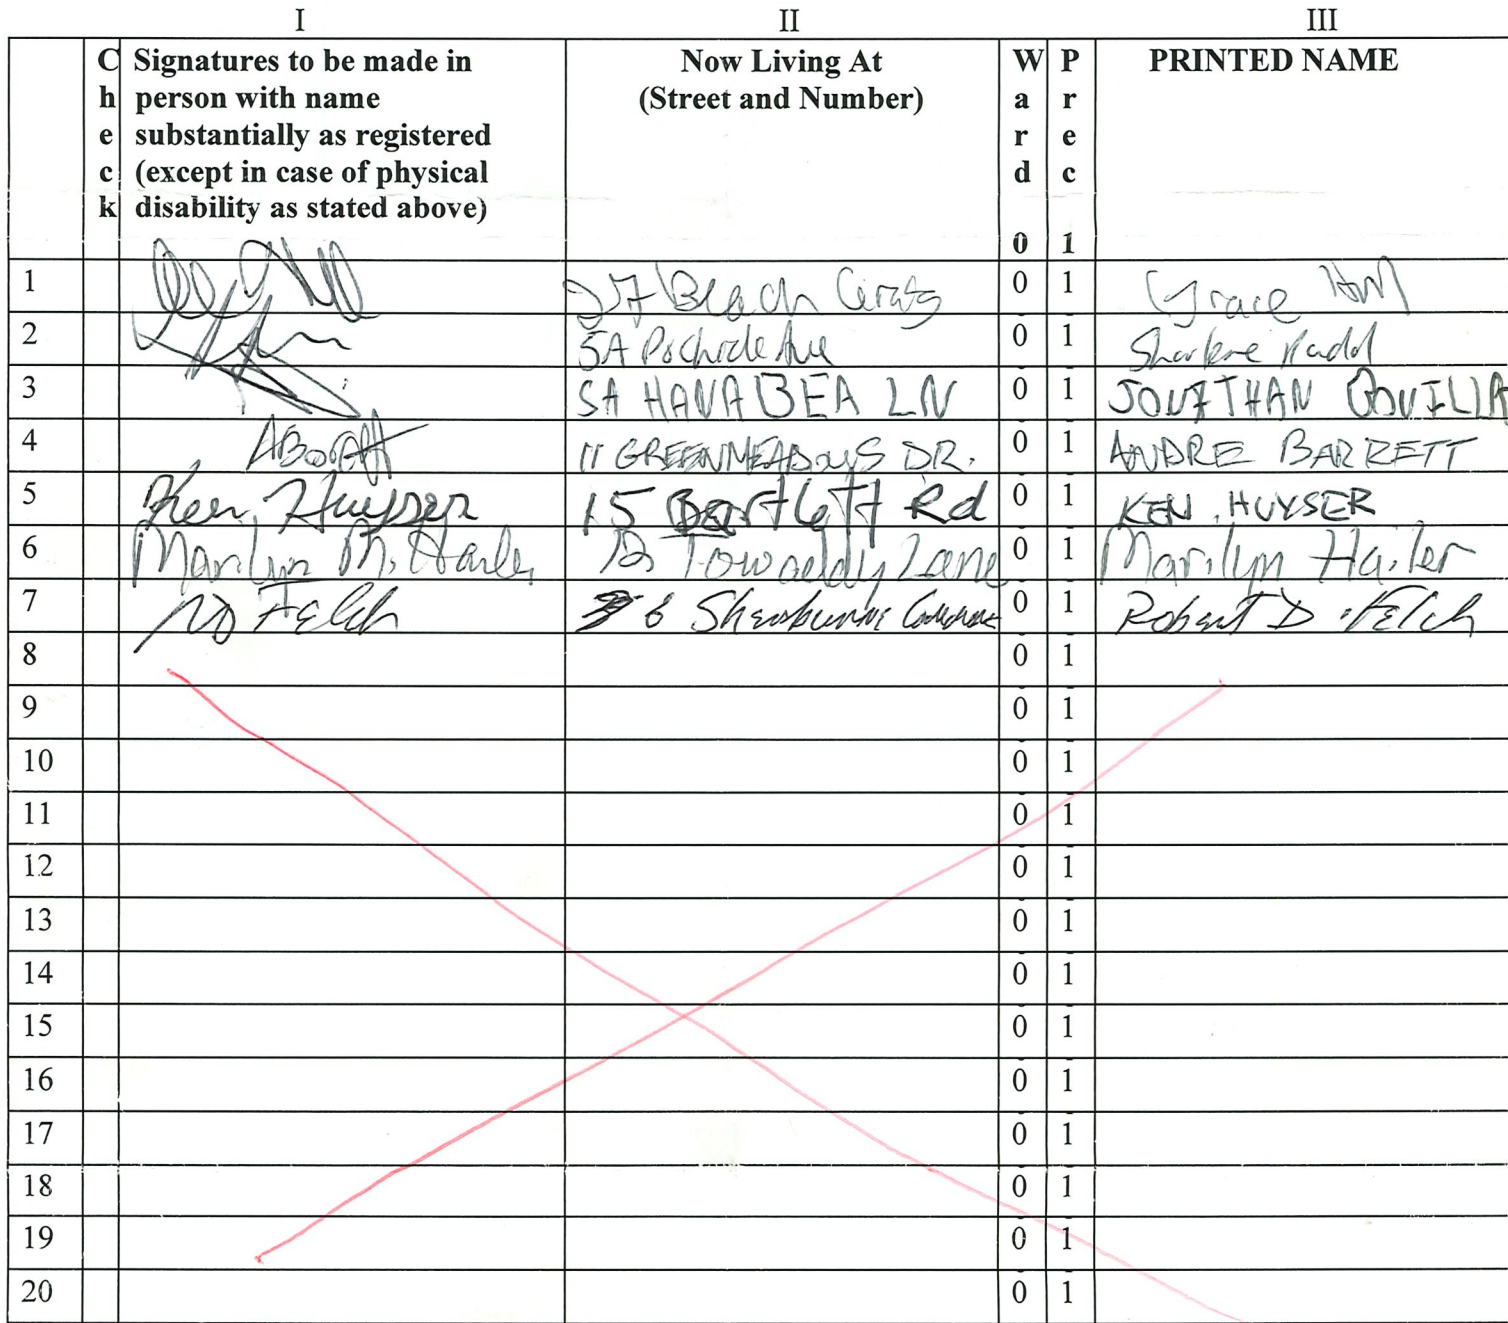 I II III
Check Signatures to be made in person with name substantially as registered (except in case of physical disability as stated above) Now Living At (Street and Number) Ward 0 Prec 1 PRINTED NAME
1 27 Beach 0 1 Grace
2 5A Ave 0 1 Sharlene
3 5A HANABEA LN 0 1 JONATHAN
4 11 GREENMEADOWS DR. 0 1 ANDRE BARRETT
5 Ken Huyser 15 Bartlett Rd 0 1 KEN HUYSER
6 Marilyn M. Hailer Towaddy Lane 0 1 Marilyn Hailer
7 RD Felch 6 Sherburne 0 1 Robert D. Felch
8 0 1
9 0 1
10 0 1
11 0 1
12 0 1
13 0 1
14 0 1
15 0 1
16 0 1
17 0 1
18 0 1
19 0 1
20 0 1